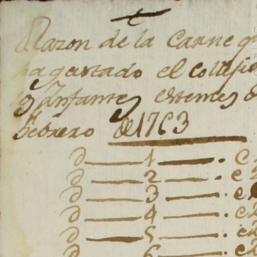 Razon de la Carne q
ha gastado el Collesi
los Infantes estemes d
Febrero de 1763
D 1
D 2
D 3
D 4
D 5
D 6